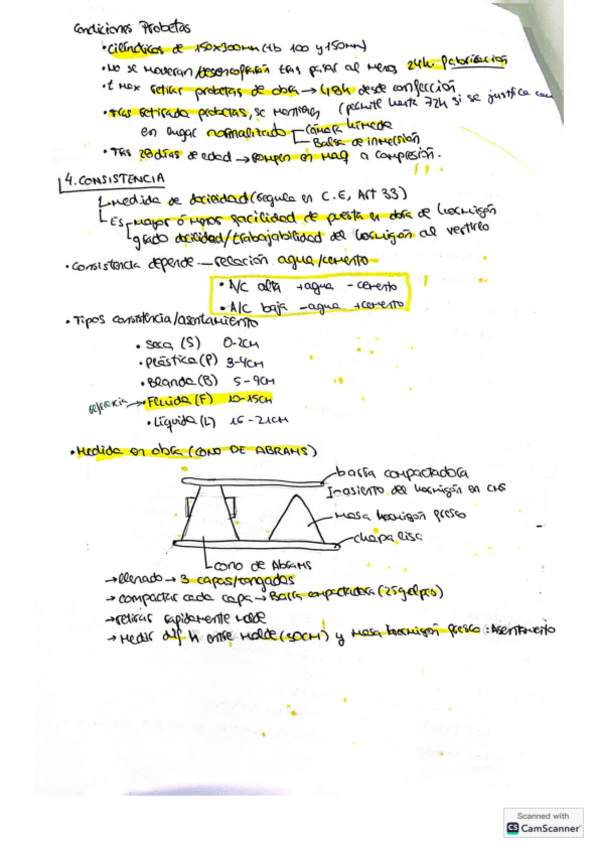 Condiciones Probetas
• Cilíndricos de 150x300mm (tb 100 y 150mm)
• No se moverán/desencofrarán tras pasar al menos 24h. fabricación
• t max retirar probetas de obra → 48h desde confección
• Tras retirado probetas, se mantienen (permite hasta 72h si se justifica
en lugar normalizado Cámara húmeda
Balsa de inmersión
• Tras 28 días de edad → rompen en maq a compresión.
4. CONSISTENCIA
medida de docilidad (regula en C.E, Art 33)
Es mayor ó menor facilidad de puesta en obra de hormigón
grado docilidad/trabajabilidad del hormigón al verterlo
• Consistencia depende — relación agua/cemento
• A/C alta +agua - cemento
• A/C baja -agua +cemento
• Tipos consistencia/asentamiento
• Seca (S) 0-2cm
• Plástica (P) 3-4cm
• Blanda (B) 5-9cm
→ Fluida (F) 10-15cm
• Líquida (L) 16-21cm
• Medida en obra (CONO DE ABRAMS)
barra compactadora
asiento del hormigón en cms
Masa hormigón fresco
chapa lisa
cono de Abrams
→ llenado → 3 capas/tongadas
→ compactar cada capa → Barra compactadora (25 golpes)
→ retirar rápidamente molde
→ Medir dif h entre Molde (30cm) y masa hormigón fresco: Asentamiento
Scanned with
CS CamScanner